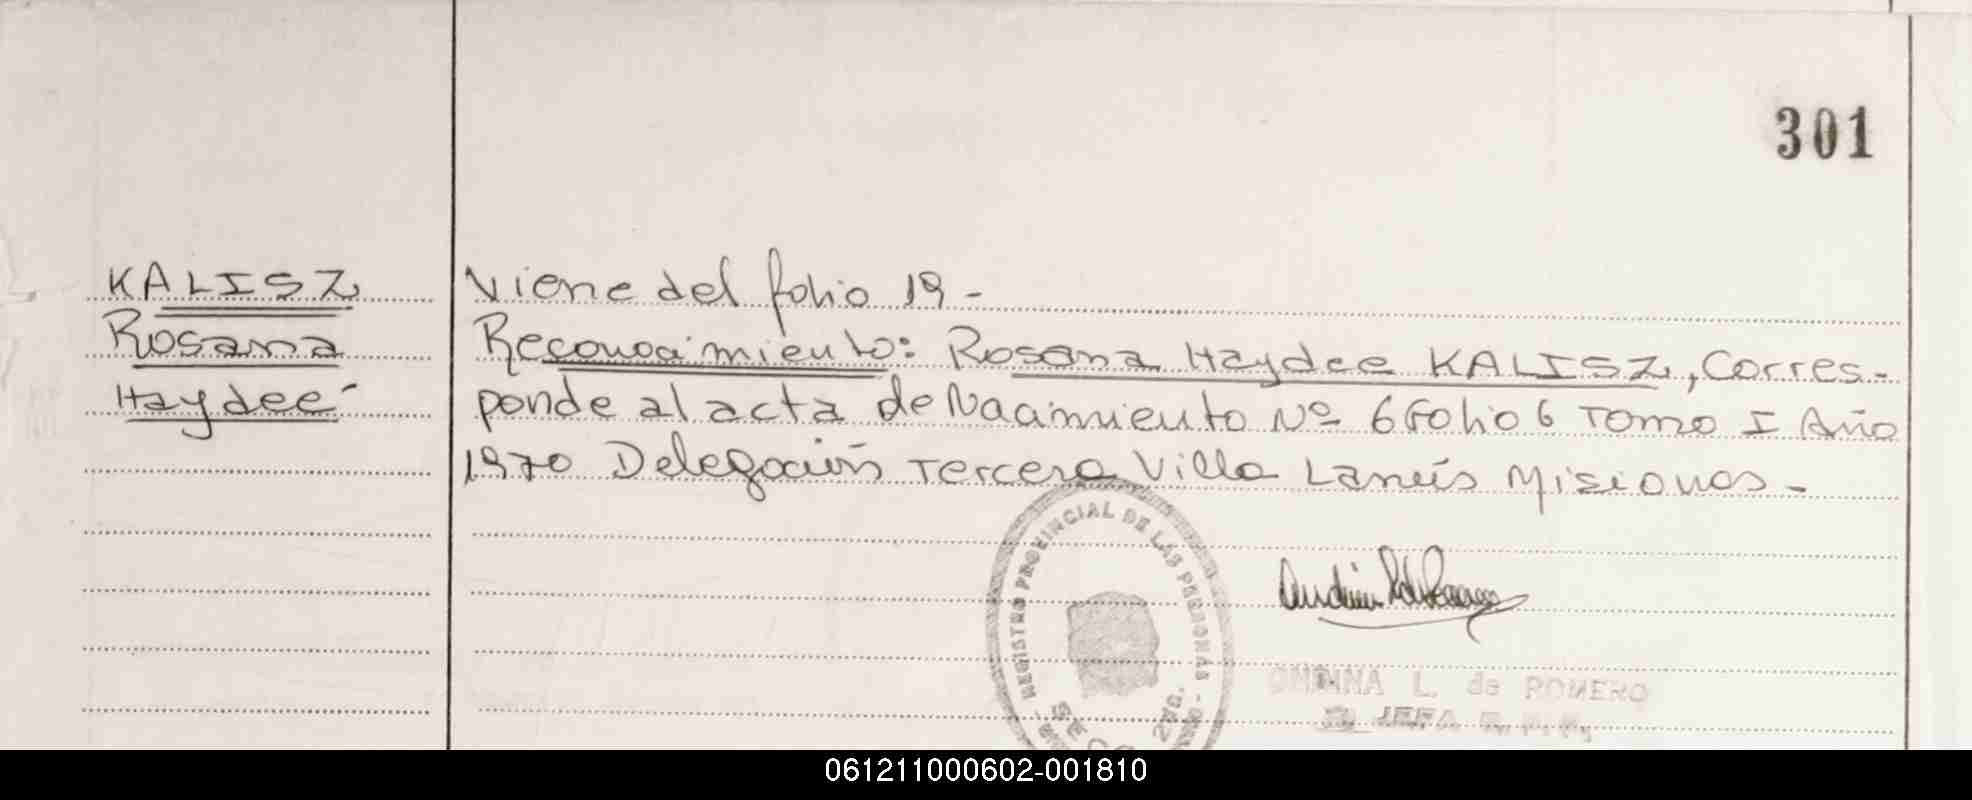 301
KALISZ
Rosana
Haydeé
Viene del folio 19 -
Reconocimiento: Rosana Haydee KALISZ, Corres-
ponde al acta de Nacimiento Nº 6 Folio 6 Tomo I Año
1970 Delegación Tercera Villa Lanús Misiones -
REGISTRO PROVINCIAL DE LAS PERSONAS
SECC. 2
L. de ROMERO
JEFA
061211000602-001810